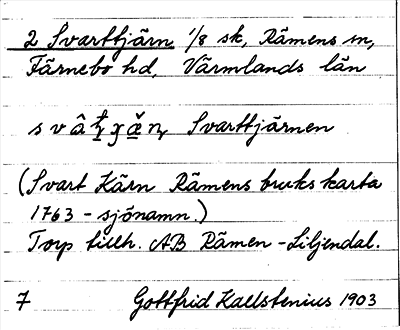 2 Svarttjärn 1/8 sk, Rämens sn,
Färnebo hd, Värmlands län
Svarttjärnen
(Svart Kärn Rämens bruks karta
1763 - sjönamn.)
Torp tillh. AB Rämen-Liljendal.
7 Gottfrid Kallstenius 1903